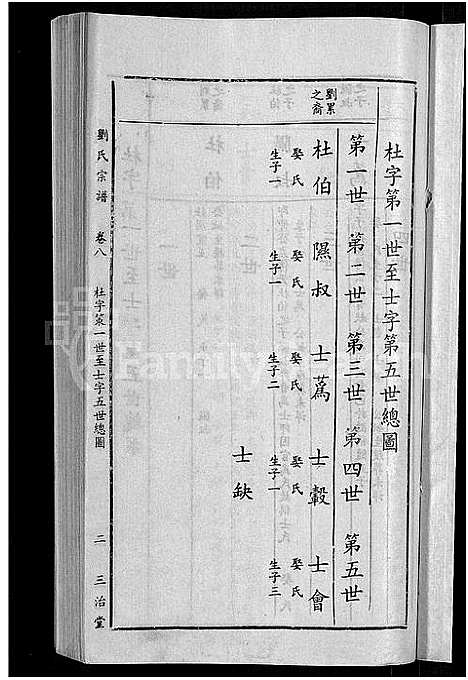 杜字第一世至士字第五世總圖
第一世 第二世 第三世 第四世 第五世
劉累之裔
杜伯 隰叔 士蒍 士縠 士會
娶氏 生子一
娶氏 生子一
娶氏 生子二
娶氏 生子一
娶氏 生子三
士缺
劉氏宗譜 卷八 杜字第一世至士字五世總圖 二 三治堂
FamilySearch